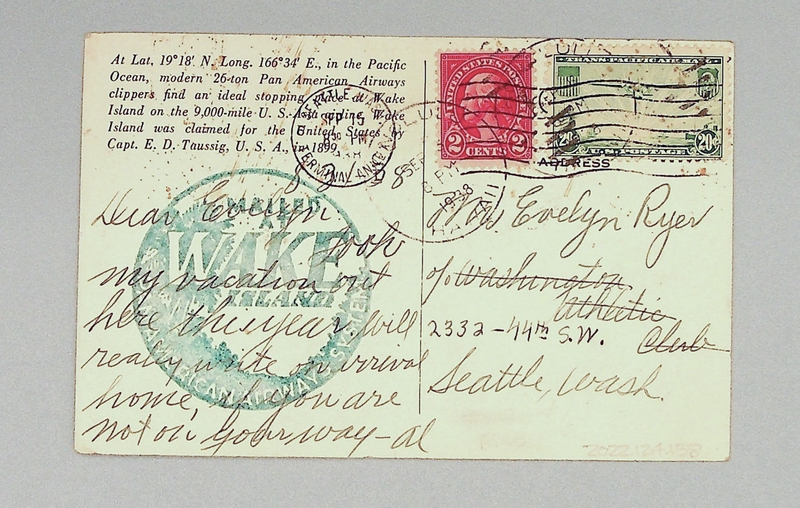 At Lat. 19°18' N. Long. 166°34' E., in the Pacific
Ocean, modern 26-ton Pan American Airways
clippers find an ideal stopping place at Wake
Island on the 9,000-mile U. S.-Asia airline. Wake
Island was claimed for the United States by
Capt. E. D. Taussig, U. S. A., in 1899.
SEATTLE, WASH.
SEP 15
8 30 PM
TERMINAL ANNEX
SEP
6 PM
1938
HAWAII
UNITED STATES POSTAGE
2 2
CENTS
TRANS-PACIFIC AIR MAIL
20¢
ADDRESS
MAILED
AT
WAKE
ISLAND
PAN AMERICAN AIRWAYS SYSTEM
Dear Evelyn
Took
my vacation out
here this year. Will
really write on arrival
home, if you are
not on your way - Al
Evelyn Ryer
c/o Washington
Athletic
Club
2332-44th S.W.
Seattle, Wash.